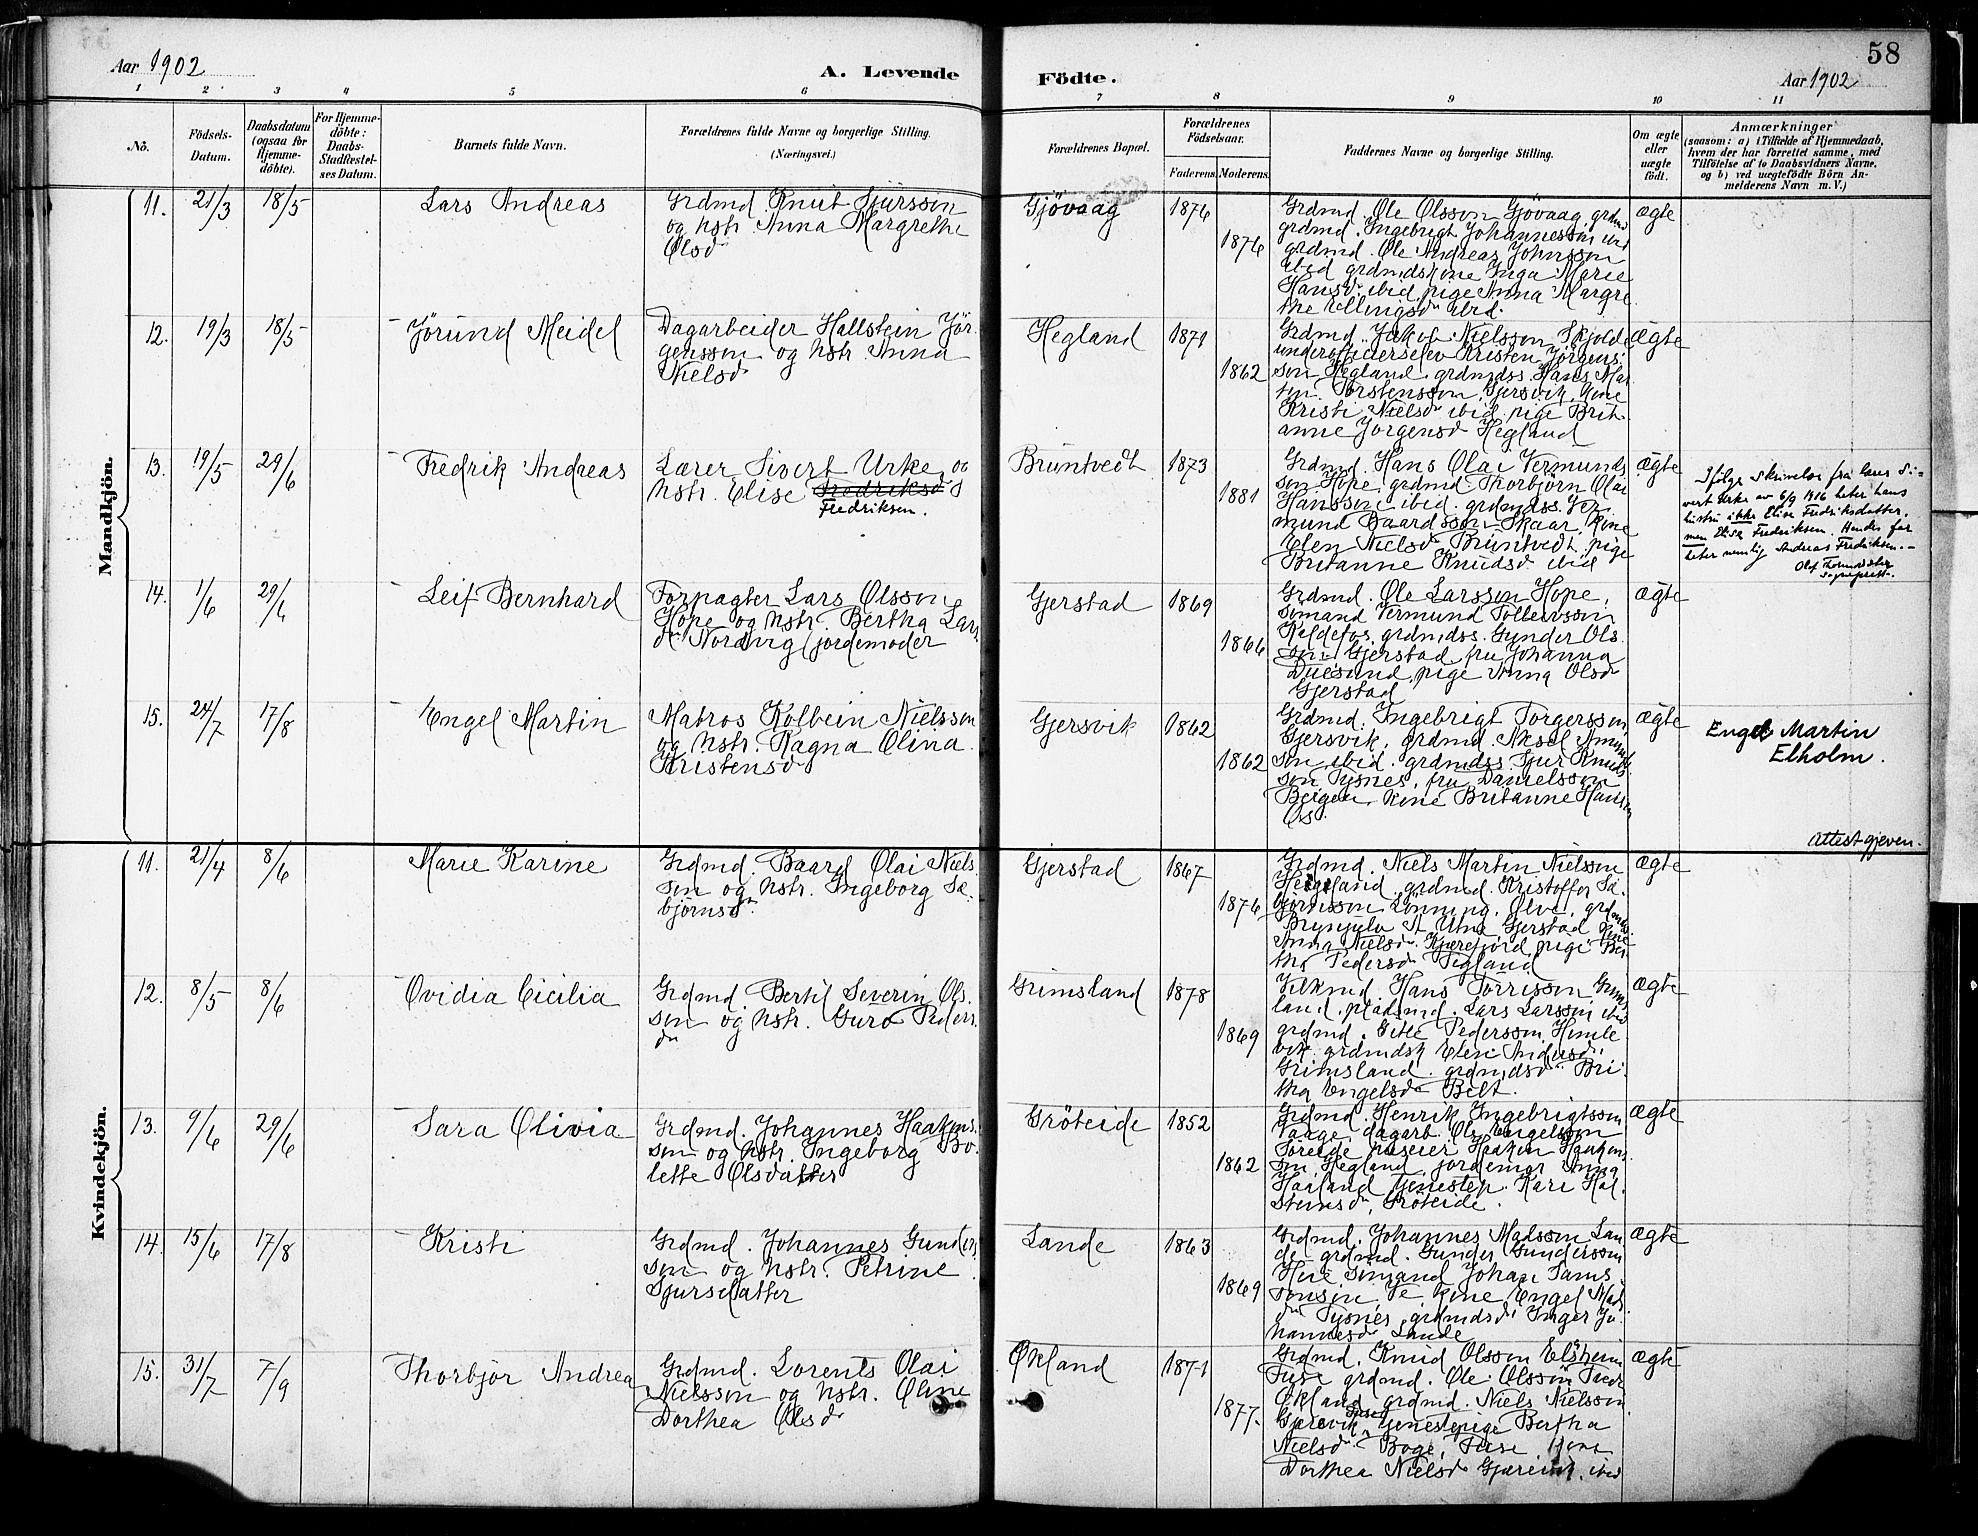 58
Aar 1902
A. Levende
Födte.
Aar 1902
1 2 3 4 5 6 7 8 9 10 11
No.
Födsels-
Datum.
Daabsdatum
(ogsaa for
Hjemme-
döbte).
For Hjemme-
döbte:
Daabs-
Stadfæstel-
ses Datum.
Barnets fulde Navn.
Forældrenes fulde Navne og borgerlige Stilling.
(Næringsvei.)
Forældrenes Bopæl.
Forældrenes
Födselsaar.
Faderens.
Moderens.
Faddernes Navne og borgerlige Stilling.
Om ægte
eller
uægte
födt.
Anmærkninger
(saasom: a) i Tilfælde af Hjemmedaab,
hvem der har forrettet samme, med
Tilföielse af to Daabsvidners Navne,
og b) ved uægtefödte Börn An-
melderens Navn m. V.)
Mandkjön.
11. 21/3 18/5 Lars Andreas
Grdmd. Knut Sjursson
og hstr. Anna Margrethe
Olsdr
Gjövaag 1876
1876
Grdmd. Ole Olsson Gjövaag,
grdmd. Ingebrigt Johannesson ibid
grdmd. Ole Andreas Johnsson
ibid grdmdskone Inga Marie
Hansdr ibid, pige Anna Margre
the Ellingsdr ibid.
ægte
12. 19/3 18/5 Jörund Meidel
Dagarbeider Hallstein Jör
gensson og hstr. Anna
Nielsdr
Hegland 1871
1862
Grdmd. Jakob Nielsson Skjolde
underofficerselev Kristen Jörgens:
son Hegland, grdmdss. Hans Mar
tin Torstensson, Gjersvik, kone
Kristi Nielsdr ibid. pige Brit
anne Jörgensdr Hegland
ægte
13. 19/5 29/6 Fredrik Andreas
Lærer Sivert Urke og
hstr. Elise Fredriksdr
Fredriksen.
Bruntvedt 1873
1881
Grdmd. Hans Olai Vermunds
son Hope, grdmd Thorbjörn Olai
Hansson ibid. grdmdss. Ver
mund Baardsson Skaar, kone
Elen Nielsdr Bruntvedt, pige
Britanne Knudsdr ibid
ægte
Ifölge skrivelse fra lærer Si-
vert Urke av 6/9 1916 heter hans
hustru ikke Elise Fredriksdatter,
men Elise Fredriksen. Hendes far
heter nemlig Andreas Fredriksen.-
Olaf
Sogneprest.
14. 1/6 29/6 Leif Bernhard
Forpagter Lars Olsson
Hope og hstr. Bertha Lars
dr Nordvig (jordemoder
Gjerstad 1869
1866
Grdmd. Ole Larsson Hope,
sömand Vermund Tollevsson
Koldefos, grdmdss. Gunder Ols
son Gjerstad, fru Johanna
Duesund, pige Anna Olsdr
Gjerstad
ægte
15. 24/7 17/8 Engel Martin
Matros Kolbein Nielsson
og hstr. Ragna Olina
Kristensdr
Gjersvik 1862
1862
Grdmd. Ingebrigt Torgersson,
Gjersvik, grdmd. Aksel Amund
son ibid. grdmdss Sjur Knuds
son Tysnes, fru Danielsson
Bergen, kone Britanne Hansen
Os.
ægte
Engel Martin
Elholm.
Attest gjeven.
Kvindekjön.
11. 21/4 8/6 Marie Karine
Grdmd. Baard Olai Niels
son og hstr. Ingeborg Sæ
björnsdr
Gjerstad 1867
1876
Grdmd. Niels Martin Nielsson
Hegland. grdmd. Kristoffer Sæ
björnsson Lönning. Ölve,
Brynjulv A Utne Gjerstad kone
Anna Nielsdr Kjærefjord pige Ber
tha Pedersdr Tegland
ægte
12. 8/5 8/6 Ovidia Cicilia
Grdmd. Bertil Severin Ols
son og hstr. Guro Peders
dr
Grimsland 1878
1869
Hans Torrisson Grims
land, pladsmd. Lars Larsson ibid
grdmd. Gitle Pedersson Himle
vik grdmdsk Elen Andersdr
Grimsland. grdmdsdr Bri
tha Engelsdr Belt.
ægte
13. 9/6 29/6 Sara Olivia
Grdmd. Johannes Haakens
son og hstr. Ingeborg Bo
lette Olsdatter
Gröteide 1852
1862
Grdmd. Henrik Ingebrigtsson
Vaage, dagarb. Ole Engelsson
Töreide, Haaken Haakens
son, Hegland, jordemor Anna
Haaland tjenestep. Kari Hal
steinsdr, Gröteide.
ægte
14. 15/6 17/8 Kristi
Grdmd. Johannes Gunders
son og hstr. Petrine
Sjursdatter
Lande 1863
1869
Grdmd. Johannes Madsson Lan
de, grdmd. Gunder Gundersson
sömand Johan Sams
sonsen Ve kone Engel Mads
dr Tysnes, grdmdsdr Inger Jo
hannesdr Lande
ægte
15. 31/7 7/9 Thorbjör Andrea
Grdmd. Lorents Olai
Nielsson og hstr. Oline
Dorthea Olsdr
Økland 1871
1877.
Grdmd. Knud Olsson Elsheim
Fuse grdmd. Ole Olsson
Økland, grdmd. Niels Nielsson
Gjærevik, Fuse tjenestepige Bertha
Nielsdr Boge, Fuse
Dorthea Nielsdr Gjærevik, ibid
ægte